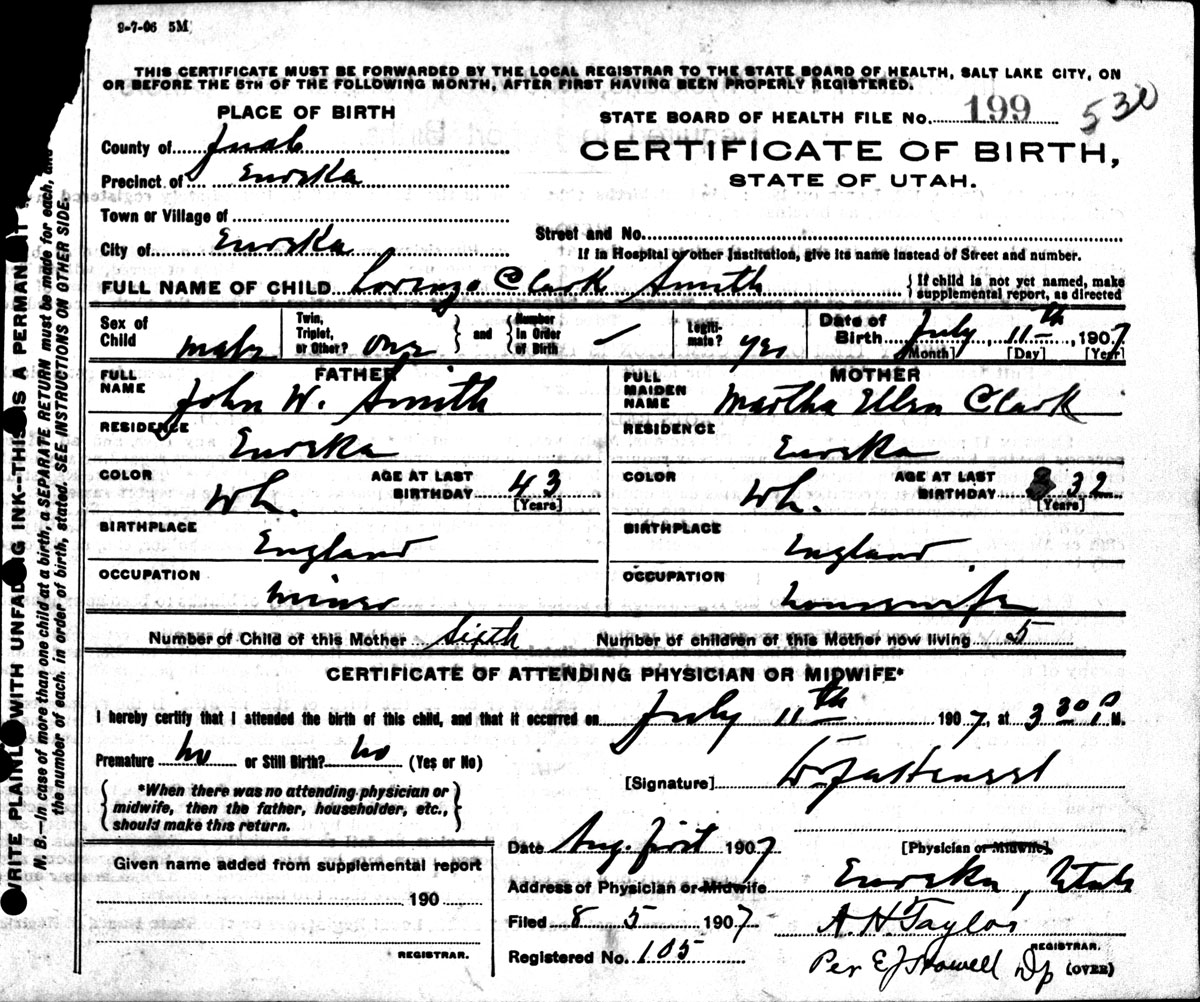 9-7-06 5M
THIS CERTIFICATE MUST BE FORWARDED BY THE LOCAL REGISTRAR TO THE STATE BOARD OF HEALTH, SALT LAKE CITY, ON
OR BEFORE THE 5TH OF THE FOLLOWING MONTH, AFTER FIRST HAVING BEEN PROPERLY REGISTERED.
PLACE OF BIRTH
STATE BOARD OF HEALTH FILE NO. 199 530
County of Juab
CERTIFICATE OF BIRTH,
Precinct of Eureka
STATE OF UTAH.
Town or Village of
Street and No.
City of Eureka
If in Hospital or other Institution, give its name instead of Street and number.
FULL NAME OF CHILD Lorenzo Clark Smith
If child is not yet named, make
supplemental report, as directed
Sex of Child male
Twin, Triplet, or Other? one
and
Number in Order of Birth
Legiti-mate? yes
Date of Birth July 11th, 1907
[Month] [Day] [Year]
FATHER
FULL NAME John W. Smith
RESIDENCE Eureka
COLOR Wh. AGE AT LAST BIRTHDAY 43
[Years]
BIRTHPLACE England
OCCUPATION miner
MOTHER
FULL MAIDEN NAME Martha Ellen Clark
RESIDENCE Eureka
COLOR Wh. AGE AT LAST BIRTHDAY 32
[Years]
BIRTHPLACE England
OCCUPATION housewife
Number of Child of this Mother Sixth Number of children of this Mother now living 5
CERTIFICATE OF ATTENDING PHYSICIAN OR MIDWIFE*
I hereby certify that I attended the birth of this child, and that it occurred on July 11th 1907, at 3 30 P M.
Premature no or Still Birth? no (Yes or No)
[Signature]
*When there was no attending physician or
midwife, then the father, householder, etc.,
should make this return.
Date Aug. first 1907
[Physician or Midwife]
Given name added from supplemental report
190
REGISTRAR.
Address of Physician or Midwife Eureka, Utah
Filed 8 5 1907 A. H. Taylor
REGISTRAR.
Registered No. 105 Per E J Howell Dp (OVER)
WRITE PLAINLY WITH UNFADING INK--THIS IS A PERMANENT
N. B.—In case of more than one child at a birth, a SEPARATE RETURN must be made for each, and
the number of each, in order of birth, stated. SEE INSTRUCTIONS ON OTHER SIDE.